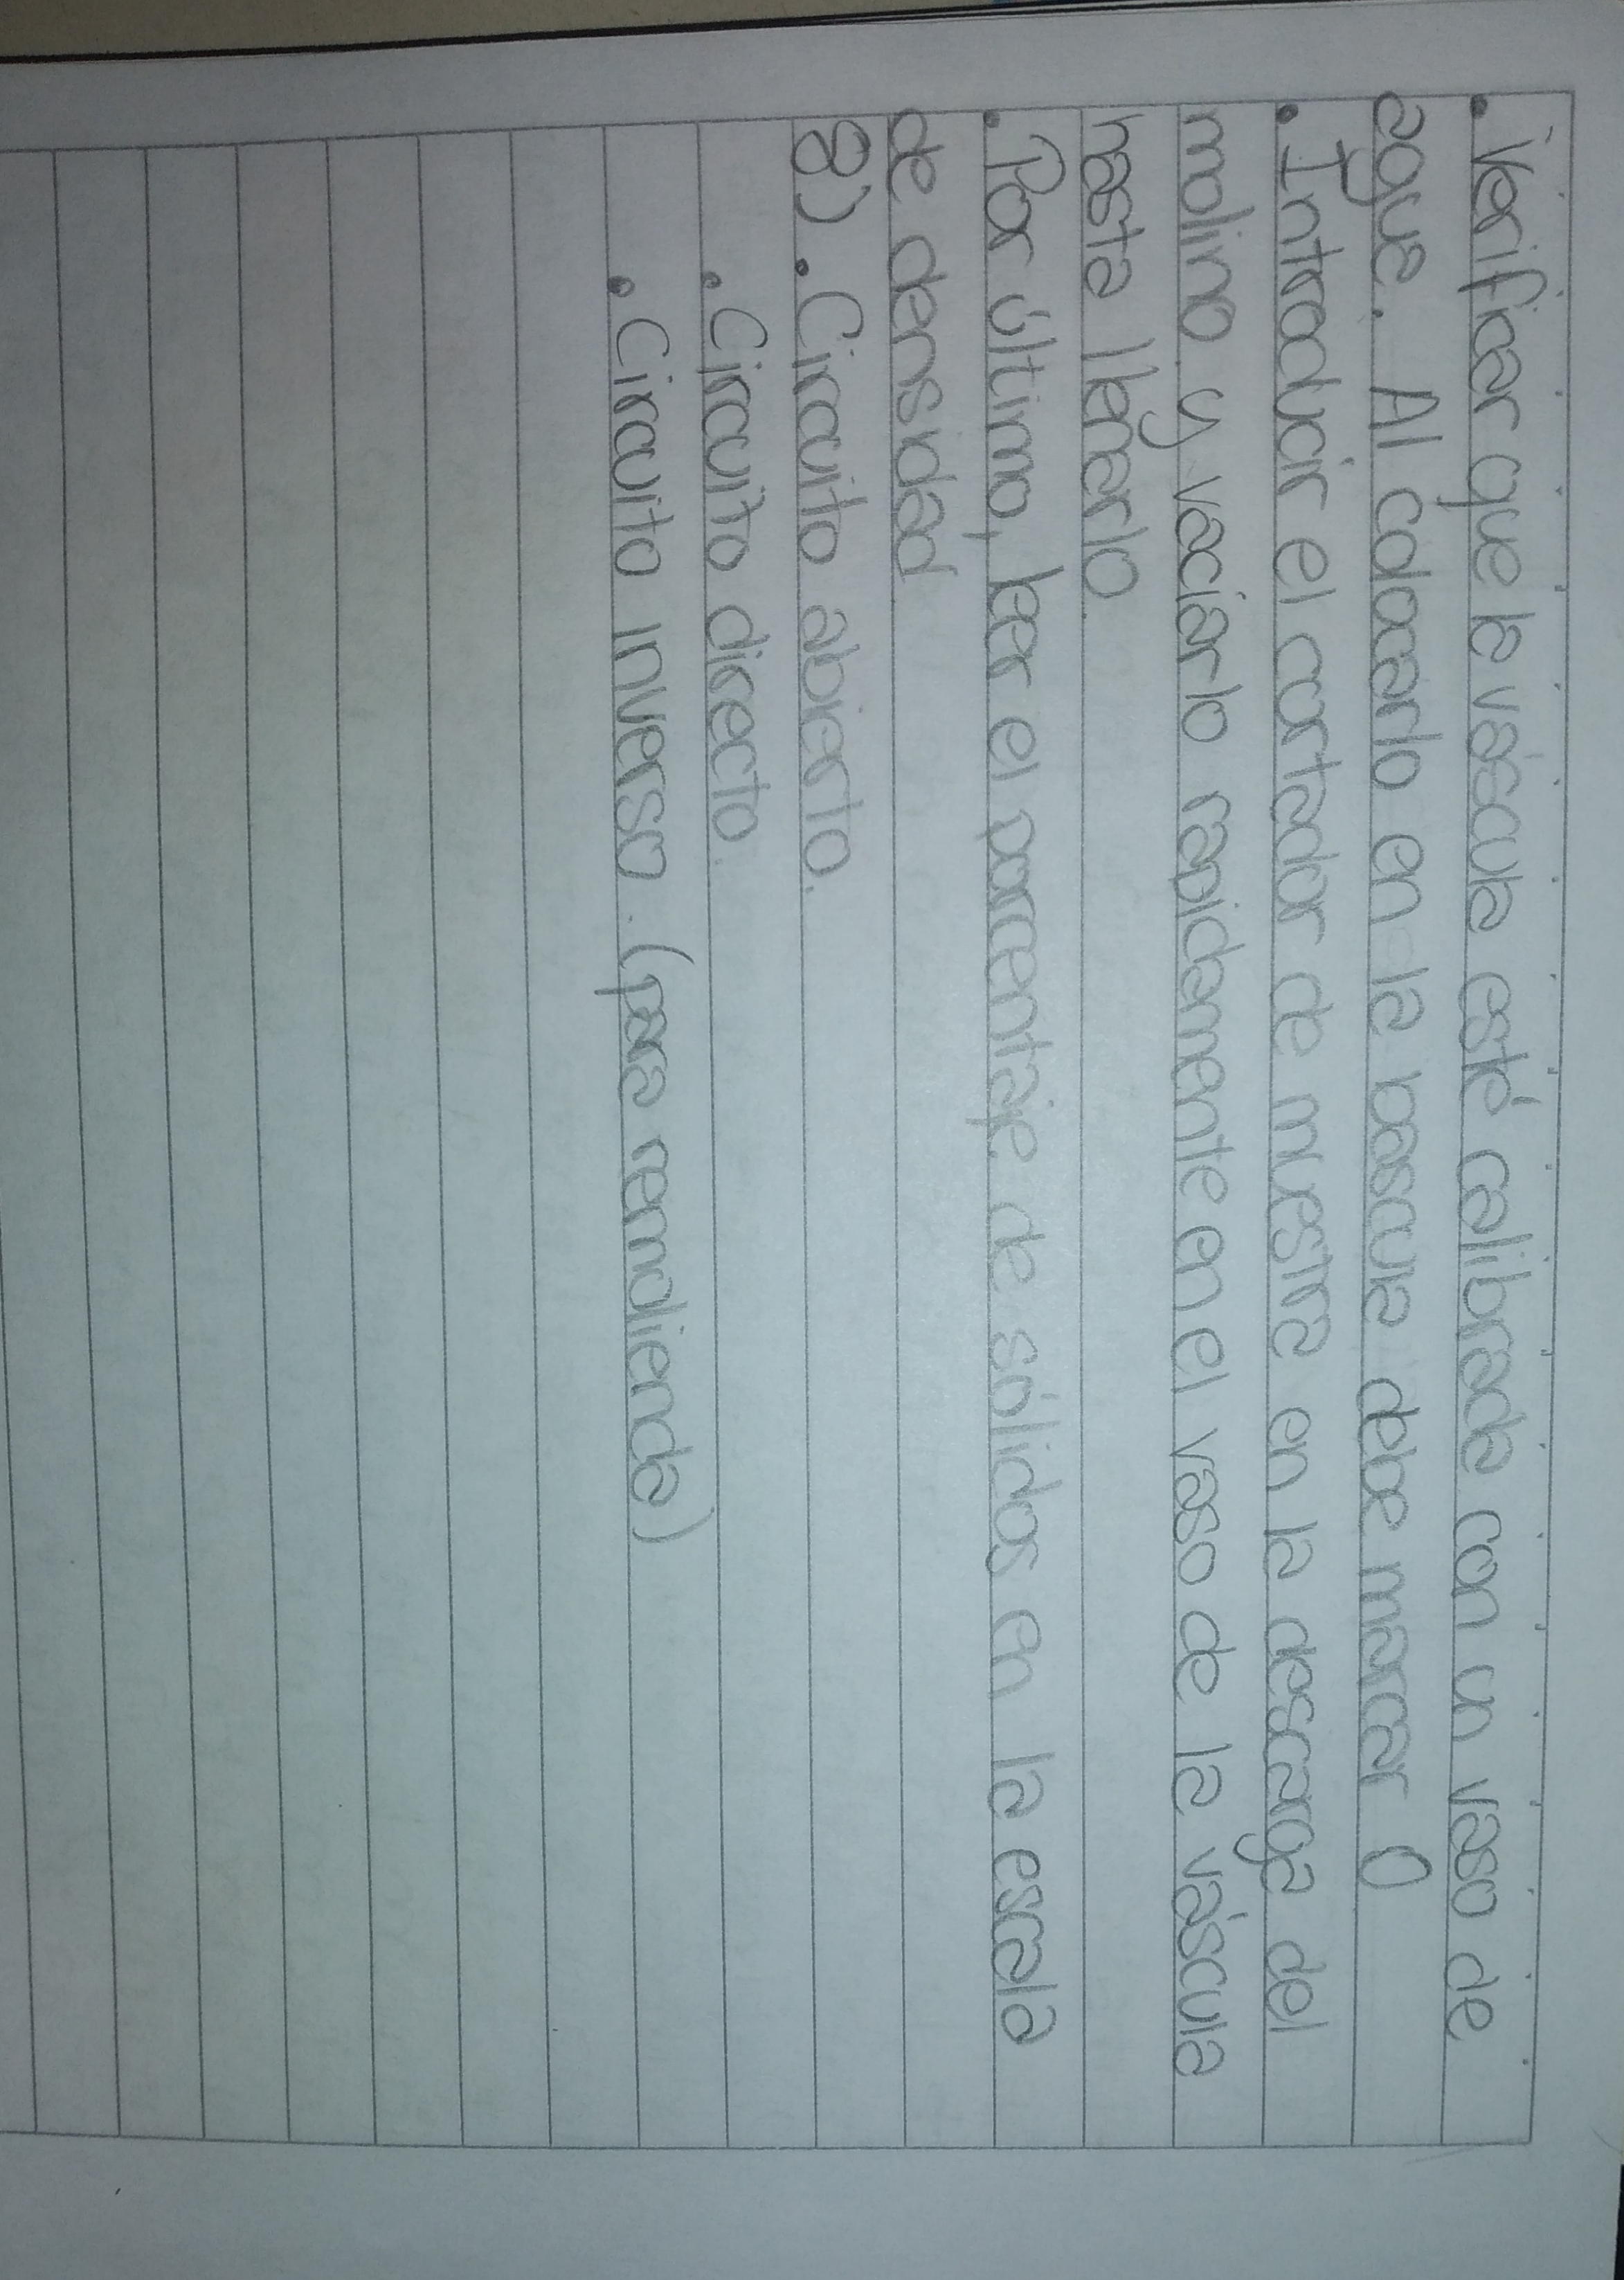 • Verificar que la váscula esté calibrada con un vaso de
agua. Al colocarlo en la bascula debe marcar 0
• Introducir el cortador de muestra en la descarga del
molino y vaciarlo rapidamente en el vaso de la váscula
hasta llenarlo.
• Por último, leer el porcentaje de sólidos en la escala
de densidad
8). • Circuito abierto.
• Circuito directo.
• Circuito inverso. (para remolienda)